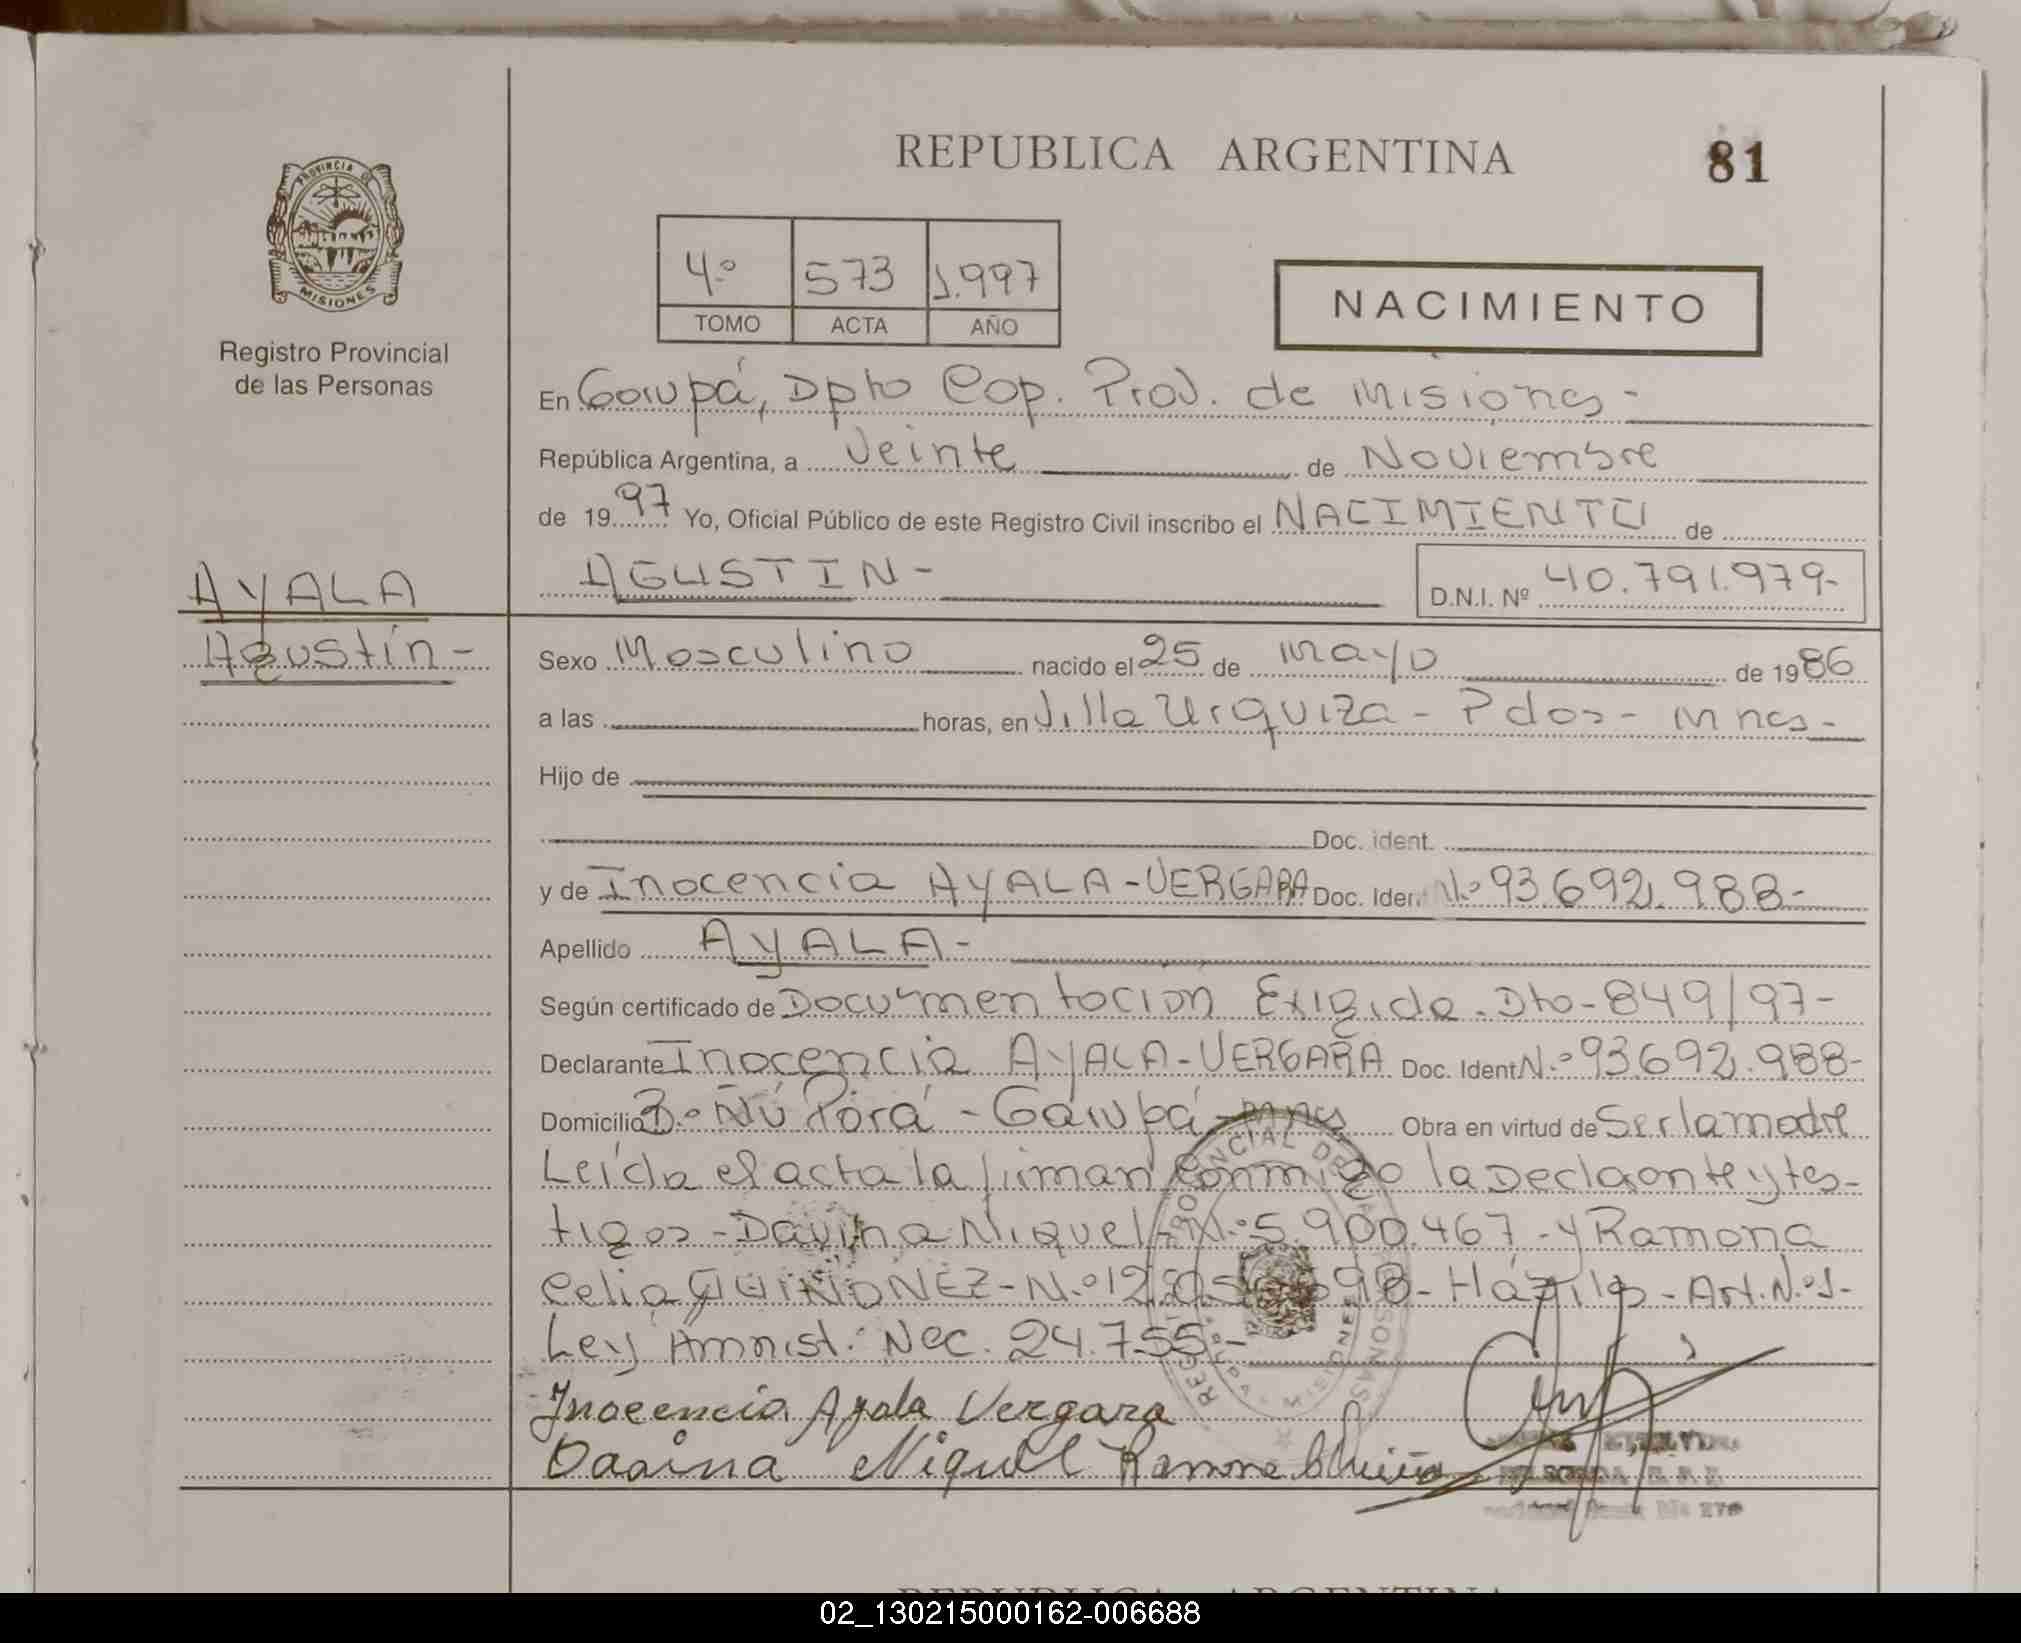 REPUBLICA ARGENTINA
81
PROVINCIA DE
MISIONES
Registro Provincial
de las Personas
4º 573 1.997
TOMO ACTA AÑO
NACIMIENTO
En Garupá, Dpto Cap. Prov. de Misiones -
República Argentina, a Veinte de Noviembre
de 1997 Yo, Oficial Público de este Registro Civil inscribo el NACIMIENTO de
AGUSTIN -
D.N.I. Nº 40.791.979-
AYALA
Agustín -
Sexo Masculino nacido el 25 de Mayo de 1986
a las horas, en Villa Urquiza - Pdas - Mnes -
Hijo de
Doc. ident.
y de Inocencia AYALA - VERGARA Doc. Ident Nº 93.692.988-
Apellido AYALA -
Según certificado de Documentación Exigida. Dto - 849/97 -
Declarante Inocencia AYALA - VERGARA Doc. Ident Nº 93.692.988-
Domicilio Bº Ñú Porá - Garupá - Mnes Obra en virtud de Ser la madre
Leída el acta la firman conmigo la Declaante y tes-
tigos - Davina Miquel - Nº 5.900.467 - y Ramona
Celia QUIÑONEZ - Nº 12. 98 - Art. Nº 1 -
Ley Amnist. Nac. 24.755 -
Inocencia Ayala Vergara
Davina Miquel Ramona
REPUBLICA ARGENTINA
02_130215000162-006688